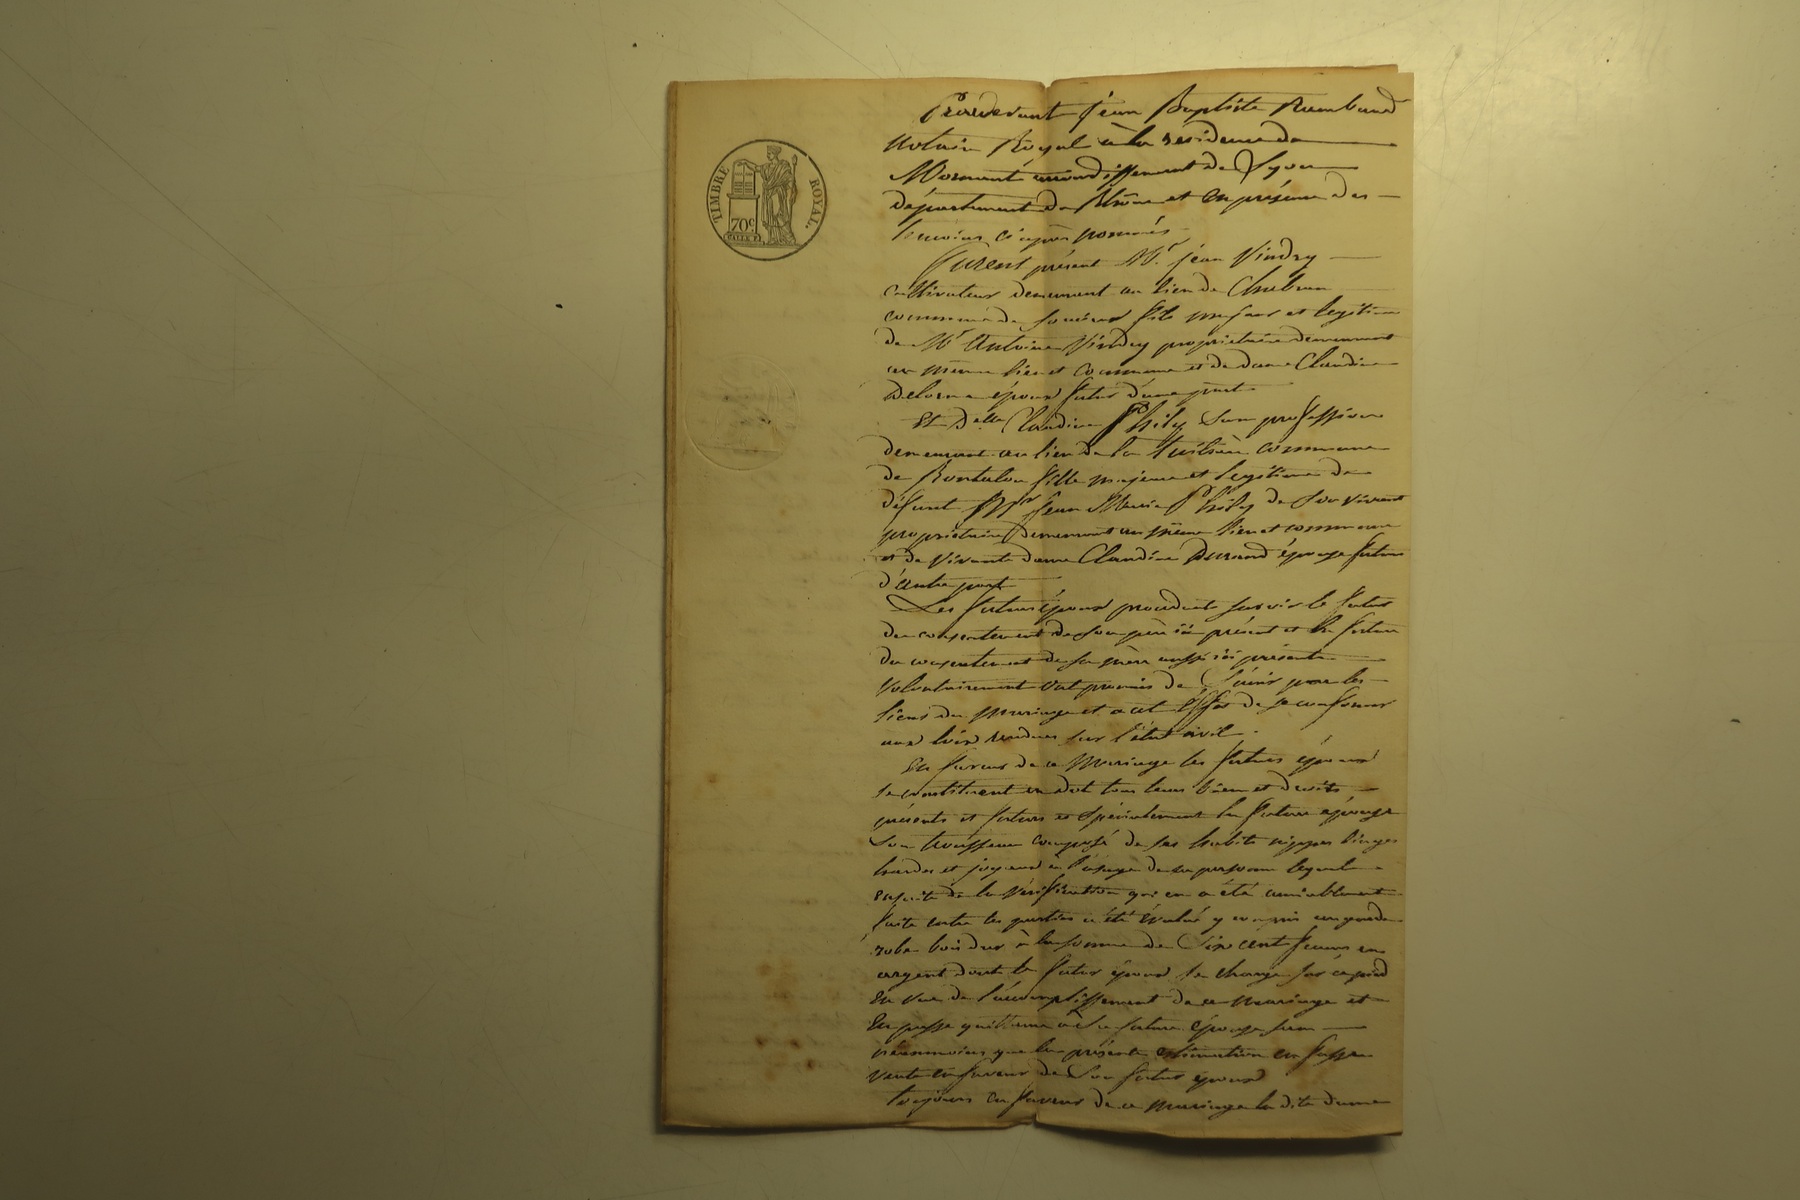 TIMBRE ROYAL
70c
Pardevant Jean Baptiste Rambaud
Notaire Royal à la résidence de
Mornant arrondissement de Lyon
département du Rhône et en présence des
témoins ci après nommés
Furent présent Mr. jean Vindry
cultivateur demeurant au lieu de
commune de fils majeur et legitime
de Mr Antoine Vindry propriétaire demeurant
au même lieu et commune et de dame Claudine
Delorme époux futur d'une part
Et Delle Claudine Phily San profession
demeurant au lieu de la commune
de Rontalon fille majeure et legitime de
défunt Mr Jean Marie Phily de Son vivant
propriétaire demeurant au même lieu et commune
et de vivante dame Claudine Durand épouse future
d'autre part
Les futurs époux procédant savoir le futur
du consentement de Son père ici présent et la future
du consentement de sa mère aussi ici présente
volontairement ont promis de S'unir par les
liens du mariage et a cet effet de se conformer
aux lois rendues sur l'état civil.
En faveur de ce Mariage les futurs époux
se constituent en dot tous leurs biens et droits
présents et futurs et Spécialement la future épouse
Son trousseau composé de ses habits nippes linges
hardes et joyaux à l'usage de sa personne lequel
ensuite de la vérification qui en a été amiablement
faite entre les parties a été évalué y compris un garde
robe bois dur à la somme de Six cent francs en
argent dont le futur époux se charge
En vue de l'accomplissement de ce mariage et
En passe quittance à Sa future épouse sans
néanmoins que la présente estimation en fasse
vente en faveur de Son futur époux
toujours en faveur de ce mariage la dite dame